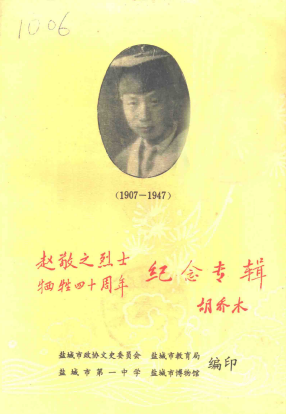 1006
(1907－1947)
赵敬之烈士
牺牲四十周年 纪念专辑
胡乔木
盐城市政协文史委员会 盐城市教育局
盐城市第一中学 盐城市博物馆 编印